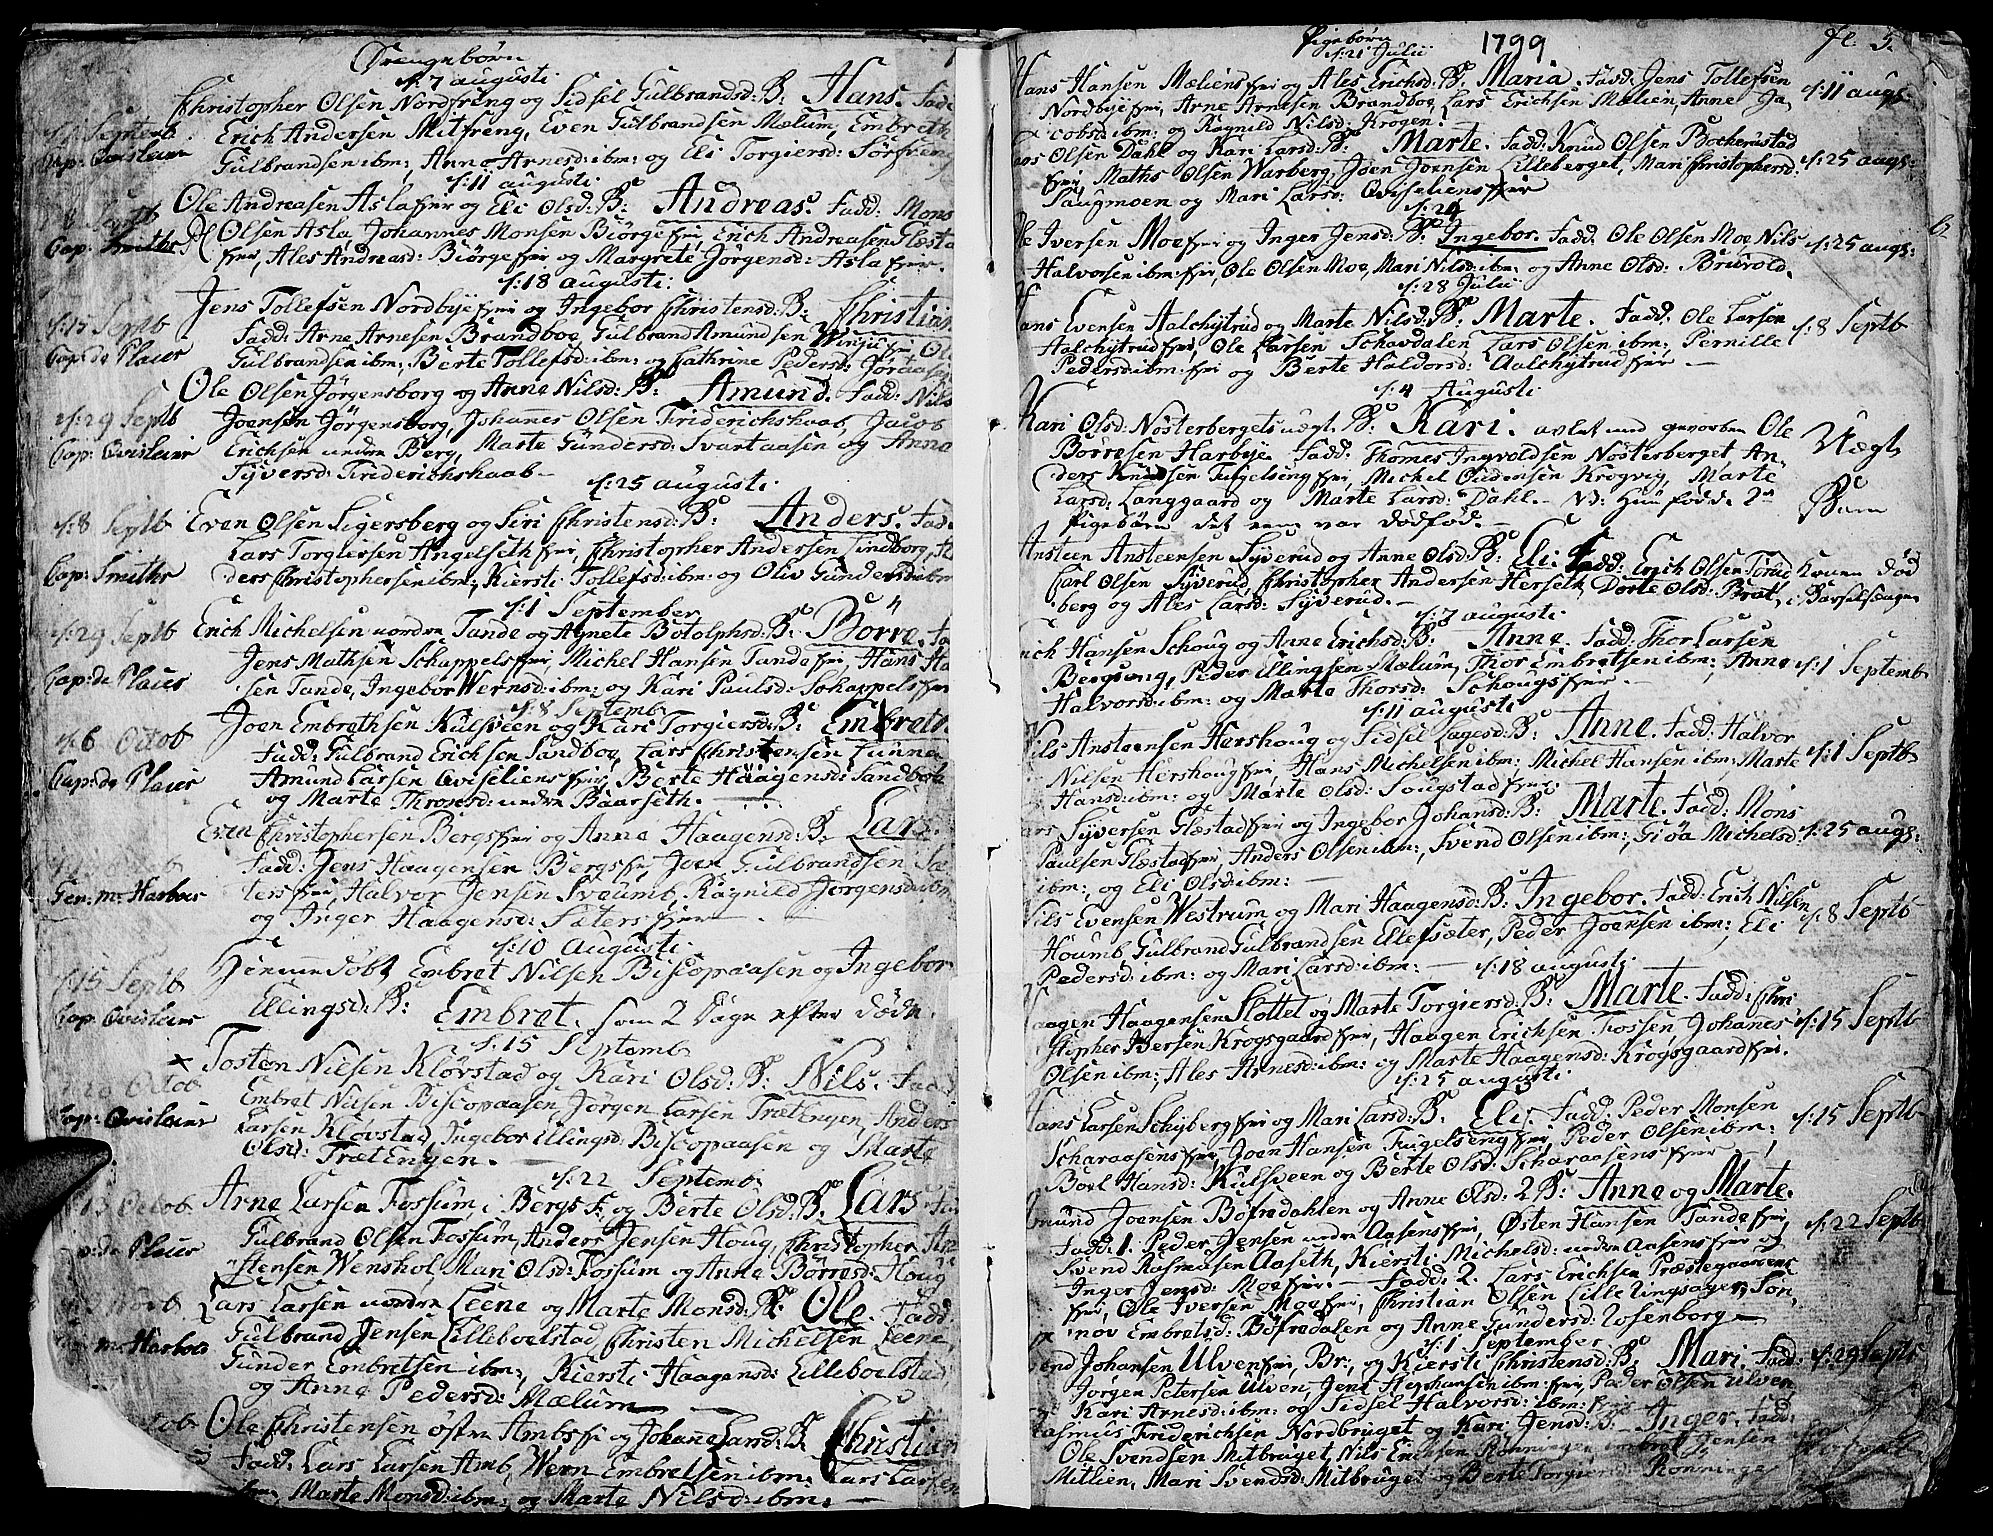 Drengebørn
d: 7 augusti
Christopher Olsen Nordreng og Sidsel Gulbrandsd: B: Hans. Fad
Erich Andersen Mitreng, Even Gulbrandsen Mælum, Embreth
Gulbrandsen ibm:, Anne Arnesd: ibm: og Eli Torgiersd: Sørreng
d: 11 augusti
Ole Andreasen Asla og Eli Olsd: B: Andreas. Fadd: Mons
Olsen Asla Johannes Monsen Biørge Erich Andreasen Glæsta
Ales Andreasd: Biørge og Margrete Jørgensd: Asla
Cap: Smiths
d: 18 augusti
Jens Tollefsen Nordbye og Ingebor Christensd: B: Christian
d: 15 Septb
Fadd: Arne Arnesen Brandboe, Gulbrand Amundsen Winju Ole
Cap: de Plaies
Gulbrandsen ibm:, Berte Tollefsd: ibm: og Cathrine Pedersd: Joraasen
Ole Olsen Jörgensborg og Anne Nilsd: B: Amund. Fadd: Nils
d: 29 Septb
Joensen Jörgensborg, Johannes Olsen Friderichshaab, Jacob
Erichsen nedre Berg, Marte Gundersd: Svartaasen og Anne
Syversd: Friderichshaab
d: 25 augusti
d: 8 Septb
Even Olsen Sigersberg og Siri Christensd: B: Anders. Fad
Lars Torgiersen Angelseth, Christopher Andersen Lindborg, An
Cap: Smiths
ders Christophersen ibm:, Kiersti Tollefsd: ibm: og Oliv Gundersd: ibm
d: 1 September
d: 29 Septb
Erich Michelsen nordre Tande og Agnete Botolphsd: B: Börre. Fa
Jens Mathsen Schappels, Michel Hansen Tande, Hans Ha
Cap: de Plaies
sen Tande, Ingebor Wernsd: ibm: og Kari Paulsd: Schappels
d: 8 Septemb
d: 6 Octob
Joen Embrethsen Kulsveen og Kari Torgiersd: B: Embret.
Fadd: Gulbrand Erichsen Sandboe, Lars Christensen Funne
Cap: de Plaies
Amund Larsen Qviseliens, Berte Haagensd: Sandboe
og Marte Thronsd: nedre Baarseth.
Even Christophersen Bergs og Anne Haagensd: B: Lars.
Fadd: Jens Haagensen Bergs, Joen Gulbrandsen Sæ
ters, Halvor Jensen Svaumb, Ragnild Jørgensd: ibm
Gen: m: Harboes
og Inger Haagensd: Sæters
d: 10 augusti
d: 15 Septb
Hiemmedöbt Embret Nilsen Biscopaasen og Ingebor
Ellingsd: B: Embret. som 2 Dage efter døde.
d: 15 Septemb
Tosten Nielsen Klövstad og Kari Olsd: B: Nils. Fad
Embret Nilsen Biscopaasen, Jörgen Larsen TrætEngen, Anders
Larsen Klövstad, Ingebor Ellingsd: Biscopaasen og Marte
Olsd: TrætEngen.
d: 22 Septemb
Arne Larsen Fossum i Bergs og Berte Olsd: B: Lars. Fad
Gulbrand Olsen Fossum, Anders Jensen Houg, Christopher An
stensen Wenskol, Mari Olsd: Fossum og Anne Börresd: Houg
Lars Larsen nordre Leene og Marte Monsd: B: Ole. Fadd:
Gulbrand Jensen Lilleboelstad, Christen Michelsen Leene
Gunder Embretsen ibm:, Kiersti Haagensd: Lilleboelstad
og Anne Pedersd: Mælum
Ole Christensen östre Ambs og Johanne Larsd: B: Christian
Fadd: Lars Larsen Amb, Wern Embretsen ibm: Lars Larsen
Marte Monsd: ibm: og Marte Nilsd: ibm:
Pigebørn 1799 fl: 5.
d: 21 Julii
Hans Hansen Mæliens og Ales Erichsd: B: Maria. Fadd: Jens Tollefsen
Nordbye, Arne Arnesen Brandboe, Lars Erichsen Mælien, Anne Ja d: 11 augs:
cobsd: ibm: og Ragnild Nilsd: Krogen.
Olsen Dahl og Kari Larsd: B: Marte. Fadd: Knud Olsen Bockerustad
Maths Olsen Warberg, Joen Joensen Lilleberget, Mari Christophersd: d: 25 augs:
Paugmoen og Mari Larsd: Qviseliens
d: 24
Ole Iversen Moe og Inger Jensd: B: Ingebor. Fadd: Ole Olsen Moe Nils d: 25 augs:
Halvorsen ibm:, Ole Olsen Moe, Mari Nilsd: ibm: og Anne Olsd: Bruvold.
d: 28 Julii
Hans Evensen Aalchytrud og Marte Nilsd: B: Marte. Fadd: Ole Larsen d: 8 Septb
Aalchytrud, Ole Larsen Schavdalen Lars Olsen ibm: Pernille
Pedersd: ibm: og Berte Haldorsd: Aalchytrud
d: 4 Augusti
Kari Olsd: Nösterbergets uægt. B: Kari. avlet med gevorben Ole Uægt
Börresen Harbye. Fadd: Thomes Ingvoldsen Nösterberget An
ders Knudsen Fugelseng, Michel Gudensen Krogvig, Marte
Larsd: Langgaard og Marte Larsd: Dahl. NB: Hun fødde 2de Barn
Pigebørn det eene var dødfød.
Ansteen Ansteensen Syverud og Anne Olsd: B: Eli. Fadd: Erich Olsen Torud Konen död
Carl Olsen Syverud Christopher Andersen Herseth, Dorte Olsd: Bræt i Barselsengen
berg og Ales Larsd: Syverud.
d: 7 augusti
Erich Hansen Schoug og Anne Erichsd: B: Anne. Fadd: Thor Larsen
Bergseng, Peder Ellingsen Mælum, Thor Embretsen ibm:, Anne d: 1 Septemb
Halvorsd: ibm: og Marte Thorsd: Schougs
d: 11 augusti
Nils Ansteensen Hershoug og Sidsel Lagesd: B: Anne. Fadd: Halvor
Nilsen Hershoug, Hans Michelsen ibm: Michel Hansen ibm: Marte d: 1 Septb
Hansd: ibm: og Marte Olsd: Sougstad
Lars Syversen Glæstad og Ingebor Johansd: B: Marte. Fadd: Mons
Paulsen Glæstad, Anders Olsen ibm:, Svend Olsen ibm:, Giöa Michelsd: d: 25 augs:
ibm: og Eli Olsd: ibm:
Nils Evensen Westrum og Mari Haagensd: B: Ingebor. Fadd: Erich Nilsen
Houmb Gulbrand Gulbrandsen Ellefsæter, Peder Joensen ibm:, Eli d: 8 Septb
Pedersd: ibm: og Mari Larsd: ibm:
d: 18 augusti
Haagen Haagensen Slottet og Marte Torgiersd: B: Marte. Fadd: Chri
stopher Ibersen Krogsgaard, Haagen Erichsen Fossen, Johanes d: 15 Septb
Olsen ibm:, Ales Arnesd: ibm: og Marte Haagensd: Krogsgaard.
d: 25 augusti
Hans Larsen Schyberg og Mari Larsd: B: Eli. Fadd: Peder Monsen d: 15 Septb
Scharaasens, Joen Hansen Fugelseng, Peder Olsen ibm:
Boel Hansd: Kulsveen og Berte Olsd: Scharaasens
Amund Joensen Böfredahlen og Anne Olsd: 2 B: Anne og Marte.
Fadd: 1. Peder Jensen nedre Aasens, Østen Hansen Tande d: 22 Septb
Svend Rasmusen Aaseth, Kiersti Michelsd: nedre Aasens og
Inger Jensd: Moe. Fadd: 2. Lars Erichsen Præstegaardens
Ole Iversen Moe, Christian Olsen Lille Ringsager, Søn
nov Embretsd: Böfredalen og Anne Gundersd: Rosenborg
d: 1 September
Svend Johansen Ulven, Br:, og Kiersti Christensd: B: Mari. Fadd: d: 29 Septb
Jørgen Petersen Ulven, Jens Stephansen ibm:, Peder Olsen Ulven
Kari Arnesd: ibm: og Sidsel Halvorsd: ibm:
Rasmus Friderichsen Nordbruget og Kari Jensd: B: Inger. Fadd:
Ole Svendsen Mitbruget, Nils Jensen
Mitlien, Mari Svendsd: Mitbruget og Berte Torgiersd: Ronninge